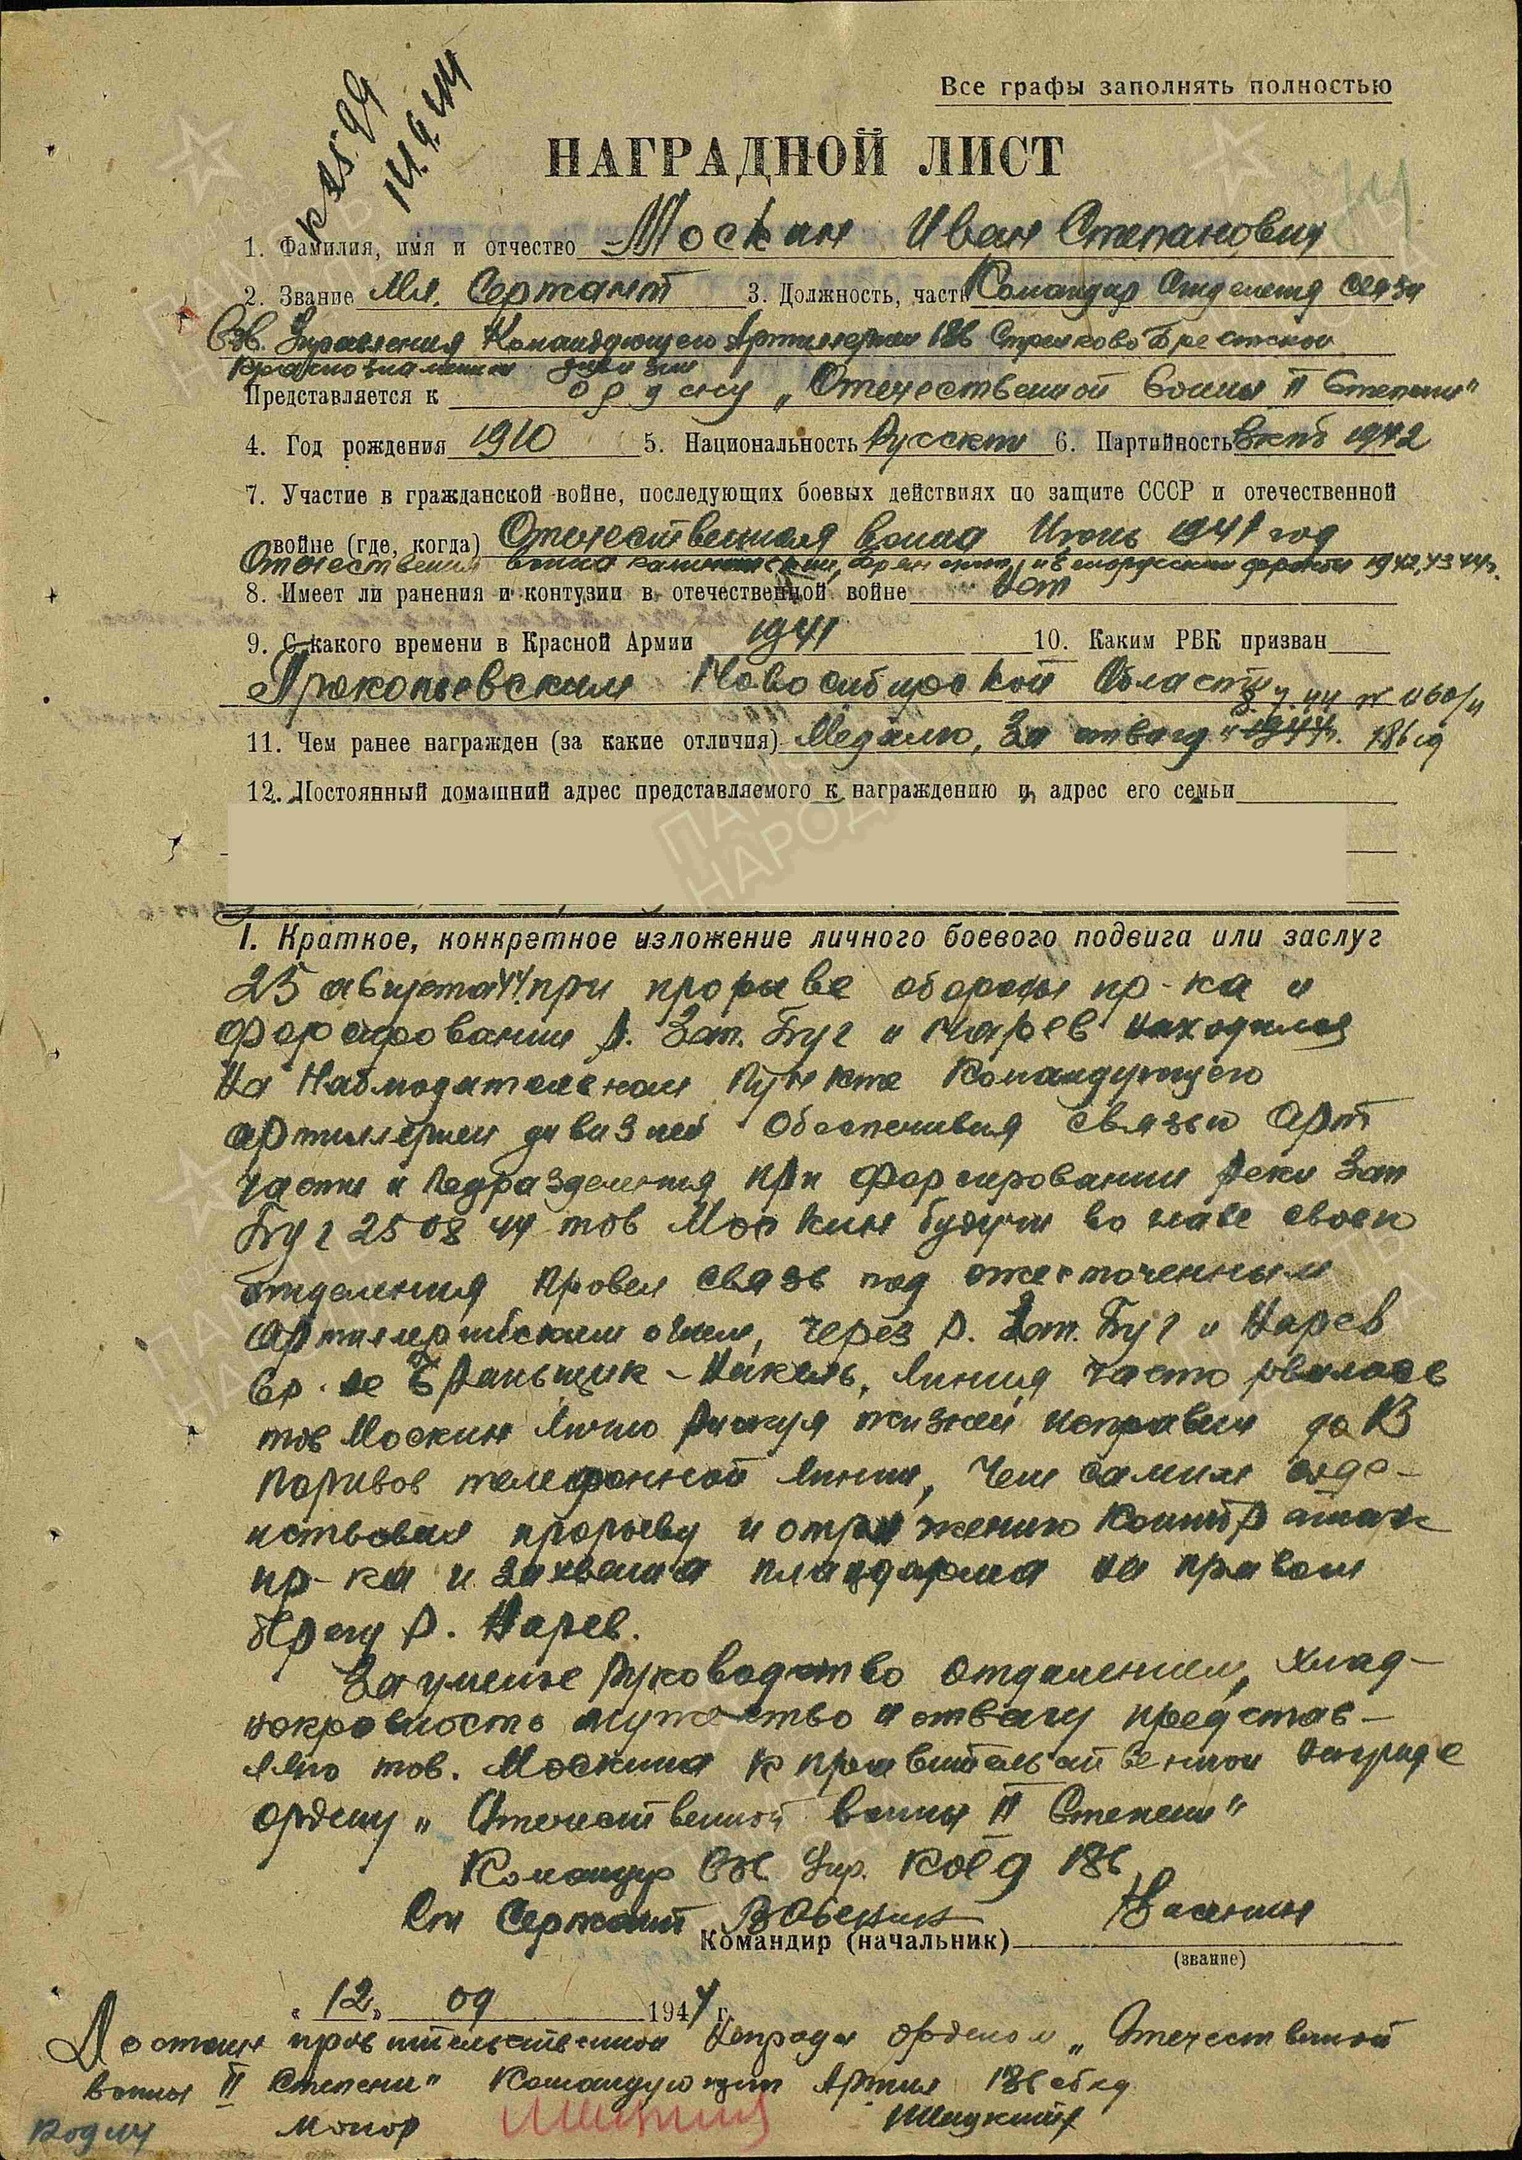 Все графы заполнять полностью
14.9.44
НАГРАДНОЙ ЛИСТ
1. Фамилия, имя и отчество Москин Иван Степанович
2. Звание Мл. Сержант 3. Должность, часть Командир Отделения связи
Взв. Управления Командующего Артиллерии 186 Стрелково Брестской
Краснознаменной дивизии
Представляется к ордену „Отечественной войны II Степени"
4. Год рождения 1910 5. Национальность Русский 6. Партийность вкпб 1942
7. Участие в гражданской войне, последующих боевых действиях по защите СССР и отечественной
войне (где, когда) Отечественная война Июнь 1941 год
Отечественная война калининский, Брянский, и Белорусский фронты 1942,43 44г.
8. Имеет ли ранения и контузии в отечественной войне Нет
9. С какого времени в Красной Армии 1941 10. Каким РВК призван
Прокопьевским Новосибирской Области
8.7.44 № 060/н
11. Чем ранее награжден (за какие отличия) Медалью „За отвагу" 1944г. 186 сд
12. Постоянный домашний адрес представляемого к награждению и адрес его семьи
I. Краткое, конкретное изложение личного боевого подвига или заслуг
25 августа 44 при прорыве обороны пр-ка и
форсировании р. Зап. Буг и Нарев находился
на Наблюдательном Пункте Командующего
артиллерией дивизией Обеспечивая связью Арт
части и подразделения при форсировании реки Зап
Буг 25 08 44 тов Москин будучи во главе своего
отделения провел связь под ожесточенным
артиллерийским огнем, через р. Зап. Буг и Нарев
в р-не Браньщик – , линия часто рвалась
тов Москин Лично рискуя жизней исправил до 13
порывов телефонной линии, Чем самим соде-
иствовал прорыву и отражению контр атак
пр-ка и захвата плацдарма на правом
берегу р. Нарев.
За умелое Руководство отделением, хлад-
нокровность мужество и отвагу представ-
ляю тов. Москина к правительственной награде
ордену „Отечественной войны II Степени"
Командир Взв. Упр. 186
Ст Сержант
Командир (начальник)
(звание)
„12" 09 1944 г.
Достоин правительственной награды орденом „Отечественной
войны II Степени" Командующий Артил 186 сбкд
Майор